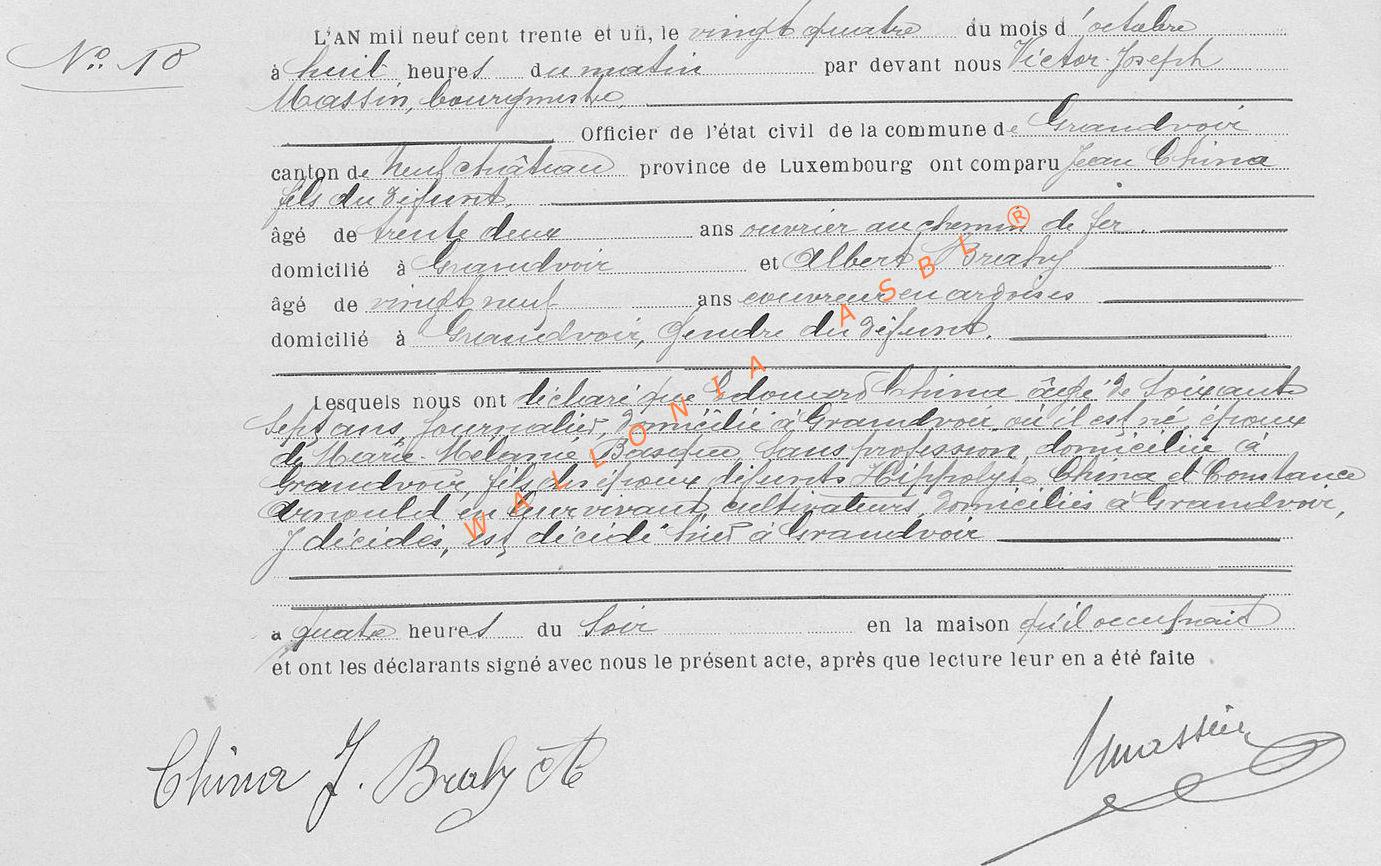 L'AN mil neuf cent trente et un, le vingt quatre du mois d'octobre
N° 10
à huit heures du matin par devant nous Victor-Joseph
Massin, bourgmestre,
Officier de l'état civil de la commune de Grandvoir
canton de Neufchâteau province de Luxembourg ont comparu Jean China
fils du défunt,
âgé de trente deux ans ouvrier au chemin de fer
domicilié à Grandvoir et Albert Brahy
âgé de vingt neuf ans couvreur en ardoises
domicilié à Grandvoir, gendre du défunt.
Lesquels nous ont déclaré que Edouard China âgé de soixante
sept ans, journalier, domicilié à Grandvoir où il est né, époux
de Marie-Mélanie Basque, sans profession, domiciliée à
Grandvoir, fils des époux défunts Hippolyte China et Constance
Arnould en leur vivant cultivateurs, domiciliés à Grandvoir,
y décédés, est décédé hier à Grandvoir
à quatre heures du soir en la maison qu'il occupait
et ont les déclarants signé avec nous le présent acte, après que lecture leur en a été faite.
China J. Brahy A
Vmassin
WALLONIA ASBL ®